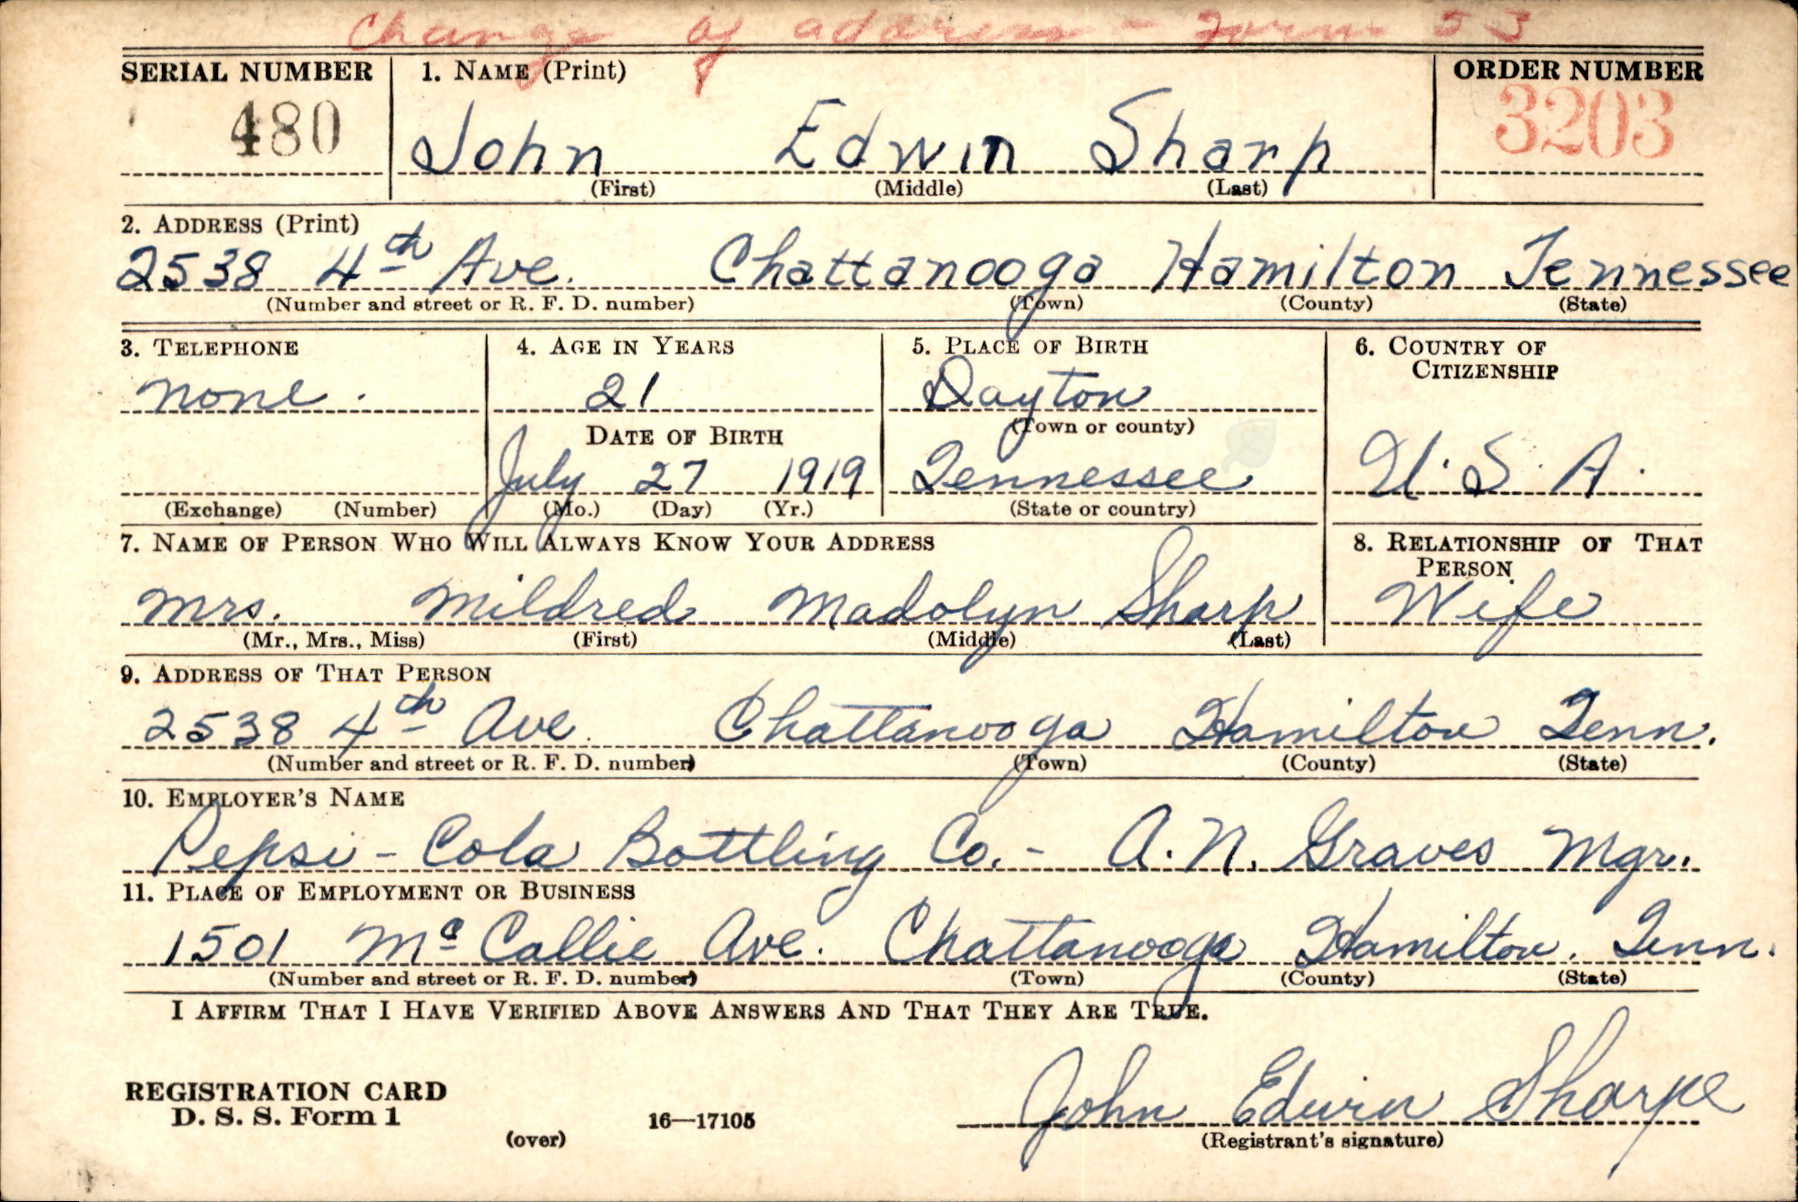 Change of address - Form 53
SERIAL NUMBER 1. NAME (Print) ORDER NUMBER
480 John Edwin Sharp 3203
(First) (Middle) (Last)
2. ADDRESS (Print)
2538 4th Ave. Chattanooga Hamilton Tennessee
(Number and street or R. F. D. number) (Town) (County) (State)
3. TELEPHONE 4. AGE IN YEARS 5. PLACE OF BIRTH 6. COUNTRY OF
CITIZENSHIP
none. 21 Dayton
DATE OF BIRTH (Town or county)
July 27 1919 Tennessee U.S.A.
(Exchange) (Number) (Mo.) (Day) (Yr.) (State or country)
7. NAME OF PERSON WHO WILL ALWAYS KNOW YOUR ADDRESS 8. RELATIONSHIP OF THAT
PERSON
Mrs. Mildred Madolyn Sharp Wife
(Mr., Mrs., Miss) (First) (Middle) (Last)
9. ADDRESS OF THAT PERSON
2538 4th Ave. Chattanooga Hamilton Tenn.
(Number and street or R. F. D. number) (Town) (County) (State)
10. EMPLOYER'S NAME
Pepsi-Cola Bottling Co. - A. N. Graves Mgr.
11. PLACE OF EMPLOYMENT OR BUSINESS
1501 McCallie Ave. Chattanooga Hamilton. Tenn.
(Number and street or R. F. D. number) (Town) (County) (State)
I AFFIRM THAT I HAVE VERIFIED ABOVE ANSWERS AND THAT THEY ARE TRUE.
REGISTRATION CARD
D. S. S. Form 1 16—17105 John Edwin Sharpe
(over) (Registrant's signature)